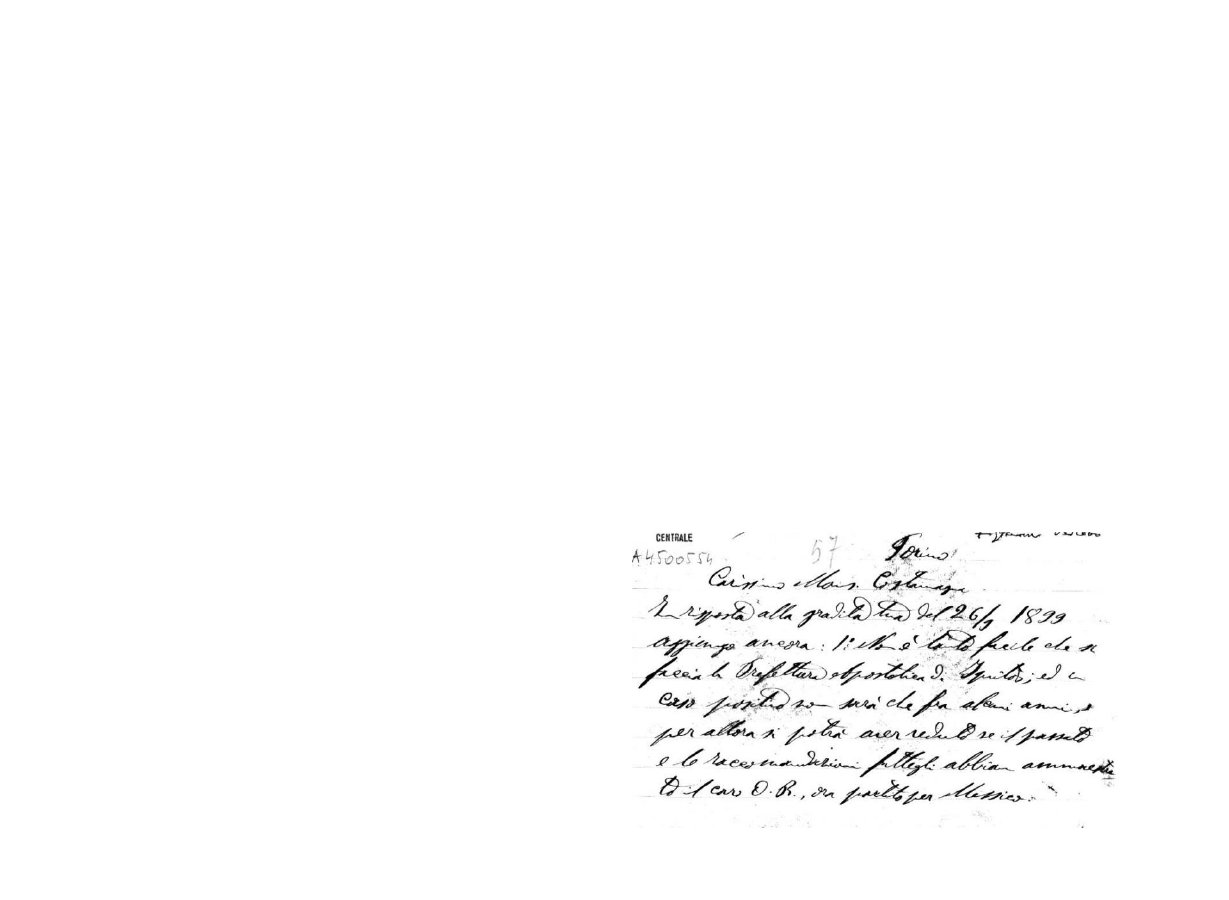 CENTRALE
A4500554
57
Torino
Carissimo Mons. Costamagna
In risposta alla gradita tua del 26/9 1899
aggiungo ancora: 1: Non è tanto facile che si
faccia la Prefettura Apostolica d. Iquitos; ed in
caso positivo non sarà che fra alcuni anni, e
per allora si potrà aver veduto se il passato
e le raccomandazioni fattegli abbian ammaestra
to il caro D. R., ora partito per Messico.